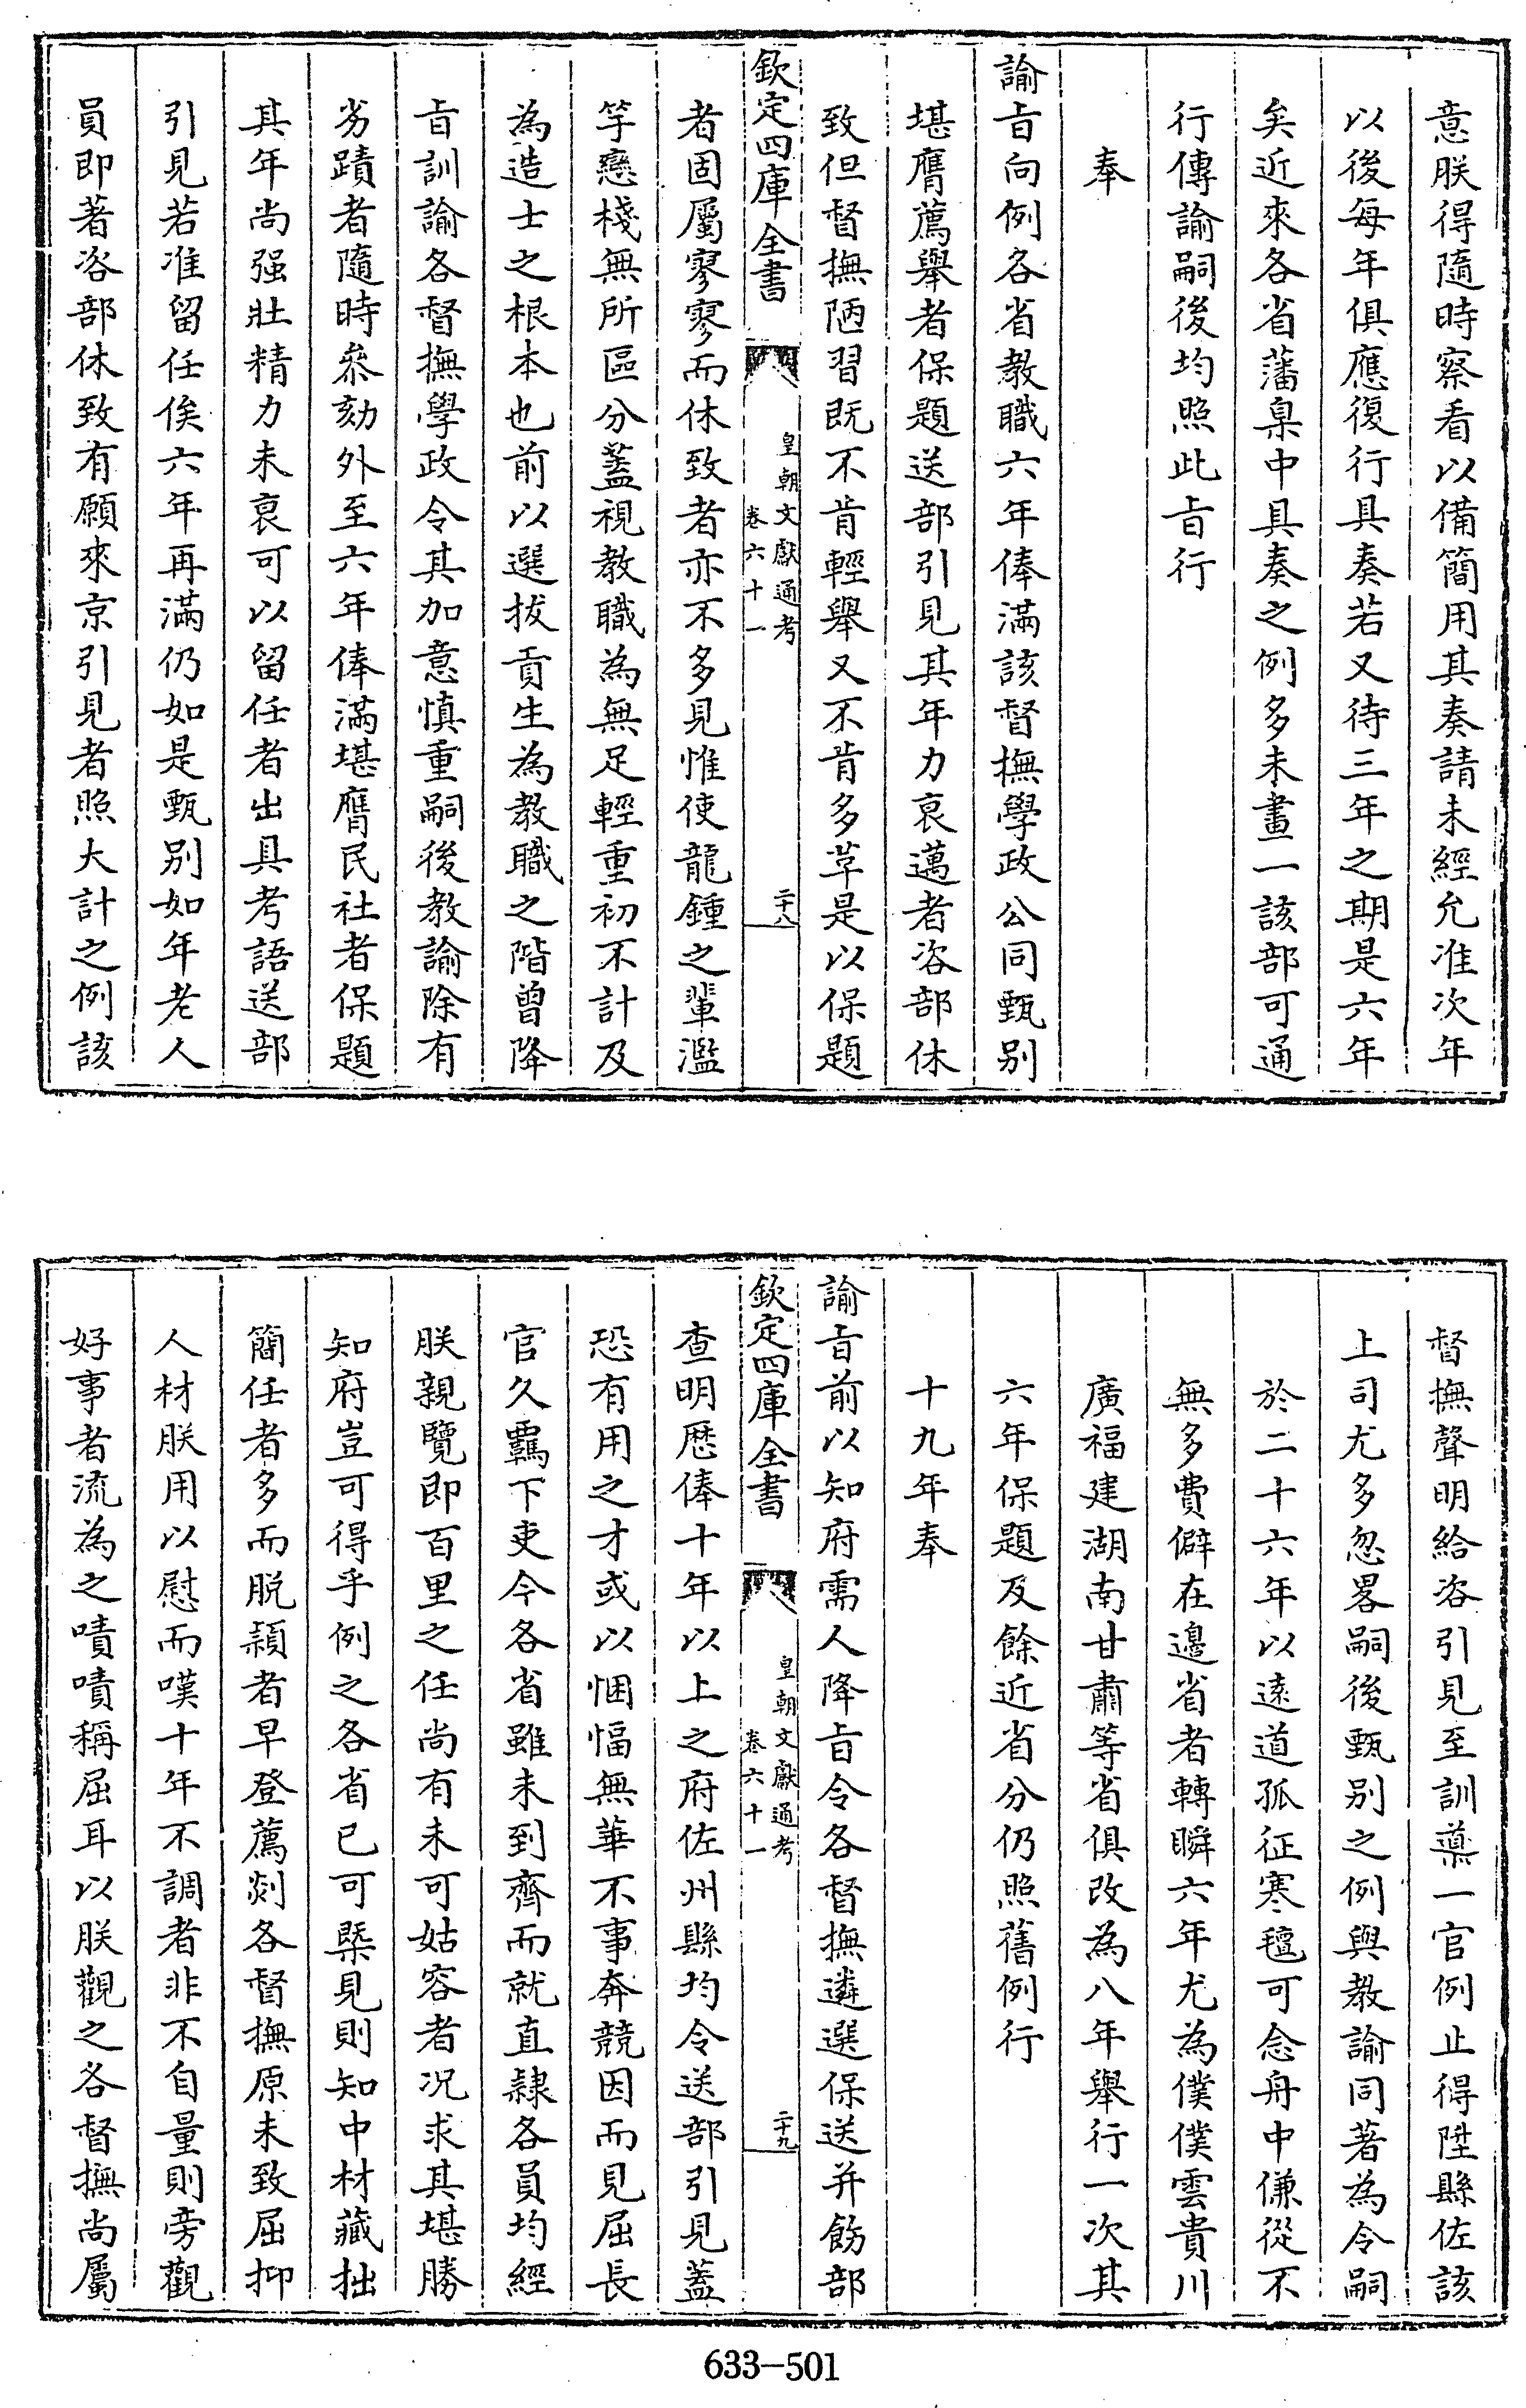 意朕得隨時察看以備簡用其奏請未經允准次年
以後每年俱應復行具奏若又待三年之期是六年
矣近來各省藩臬中具奏之例多未畫一該部可通
行傳諭嗣後均照此㫖行
奉
諭㫖向例各省教職六年俸滿該督撫學政公同甄别
堪膺薦舉者保題送部引見其年力衰邁者咨部休
致但督撫陋習既不肯輕舉又不肯多革是以保題
欽定四庫全書
皇朝文獻通考
卷六十一
二十八
者固屬寥寥而休致者亦不多見惟使龍鍾之輩濫
竽戀棧無所區分葢視教職為無足輕重初不計及
為造士之根本也前以選拔貢生為教職之階曾降
㫖訓諭各督撫學政令其加意慎重嗣後教諭除有
劣蹟者隨時叅劾外至六年俸滿堪膺民社者保題
其年尚强壯精力未衰可以留任者出具考語送部
引見若准留任俟六年再滿仍如是甄别如年老人
員即著咨部休致有願來京引見者照大計之例該
督撫聲明給咨引見至訓𨗳一官例止得陞縣佐該
上司尤多忽畧嗣後甄别之例與教諭同著為令嗣
於二十六年以遠道孤征寒氊可念舟中傔從不
無多費僻在邊省者轉瞬六年尤為僕僕雲貴川
廣福建湖南甘肅等省俱改為八年舉行一次其
六年保題及餘近省分仍照舊例行
十九年奉
諭㫖前以知府需人降㫖令各督撫遴選保送并飭部
欽定四庫全書
皇朝文獻通考
卷六十一
二十九
查明歷俸十年以上之府佐州縣均令送部引見葢
恐有用之才或以悃愊無華不事奔競因而見屈長
官久羈下吏今各省雖未到齊而就直隸各員均經
朕親覽即百里之任尚有未可姑容者况求其堪勝
知府豈可得乎例之各省已可槩見則知中材藏拙
簡任者多而脱頴者早登薦剡各督撫原未致屈抑
人材朕用以慰而嘆十年不調者非不自量則旁觀
好事者流為之嘖嘖稱屈耳以朕觀之各督撫尚屬
633-501